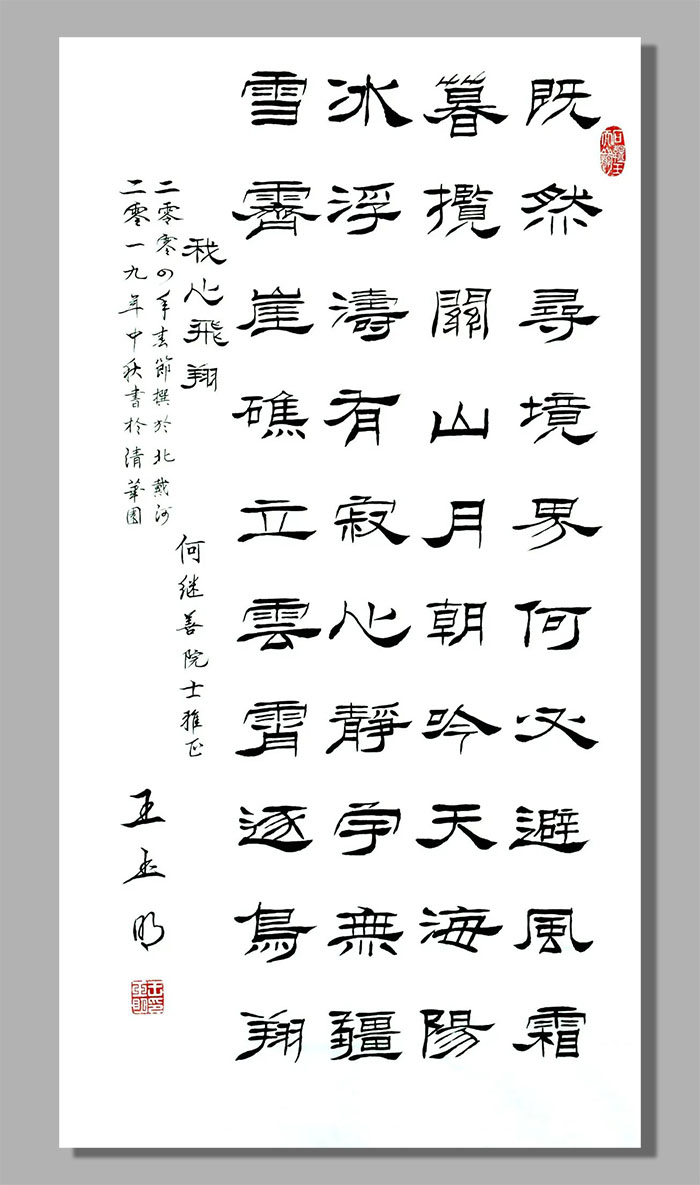 既然尋境界何必避風霜
暮攬關山月朝吟天海陽
冰浮濤有寂心靜宇無疆
雪霽崖礁立雲霄逐鳥翔
我心飛翔
何继善院士雅正
二零零四年春節撰於北戴河
二零一九年中秋書於清華園
王玉明